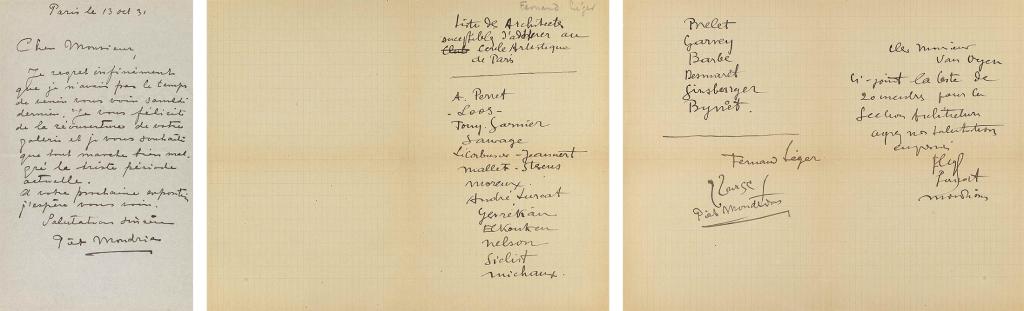 Paris le 13 oct 31
Cher Monsieur,
Je regret infiniment
que je n'avais pas le temps
de venir vous voir samedi
dernier. Je vous félicite
de la réouverture de votre
galerie et je vous souhaite
que tout marche bien mal-
gré la triste période
actuelle.
A votre prochaine exposition
j'espère vous voir.
Salutations sincères
Piet Mondrian
Fernand Léger
Liste de Architectes
susceptibles d'adhérer au
Club Cercle Artistique
de Paris
A. Perret
- Loos -
Tony. Garnier
Sauvage
Lecorbusier - Jeanneret
Mallet - Stevens
moreux.
André Lurcat
Guevrekian
Elkouken
nelson
Siclist
michaux.
Brelet
Garvey
Barbe
Desmaret
Ginsberger
Bynet.
Fernand Léger
Piet Mondrian
Cher Monsieur
Van Oyen
Ci-joint la liste de
20 membres pour la
Section Architecture
ayez nos salutations
mondrian